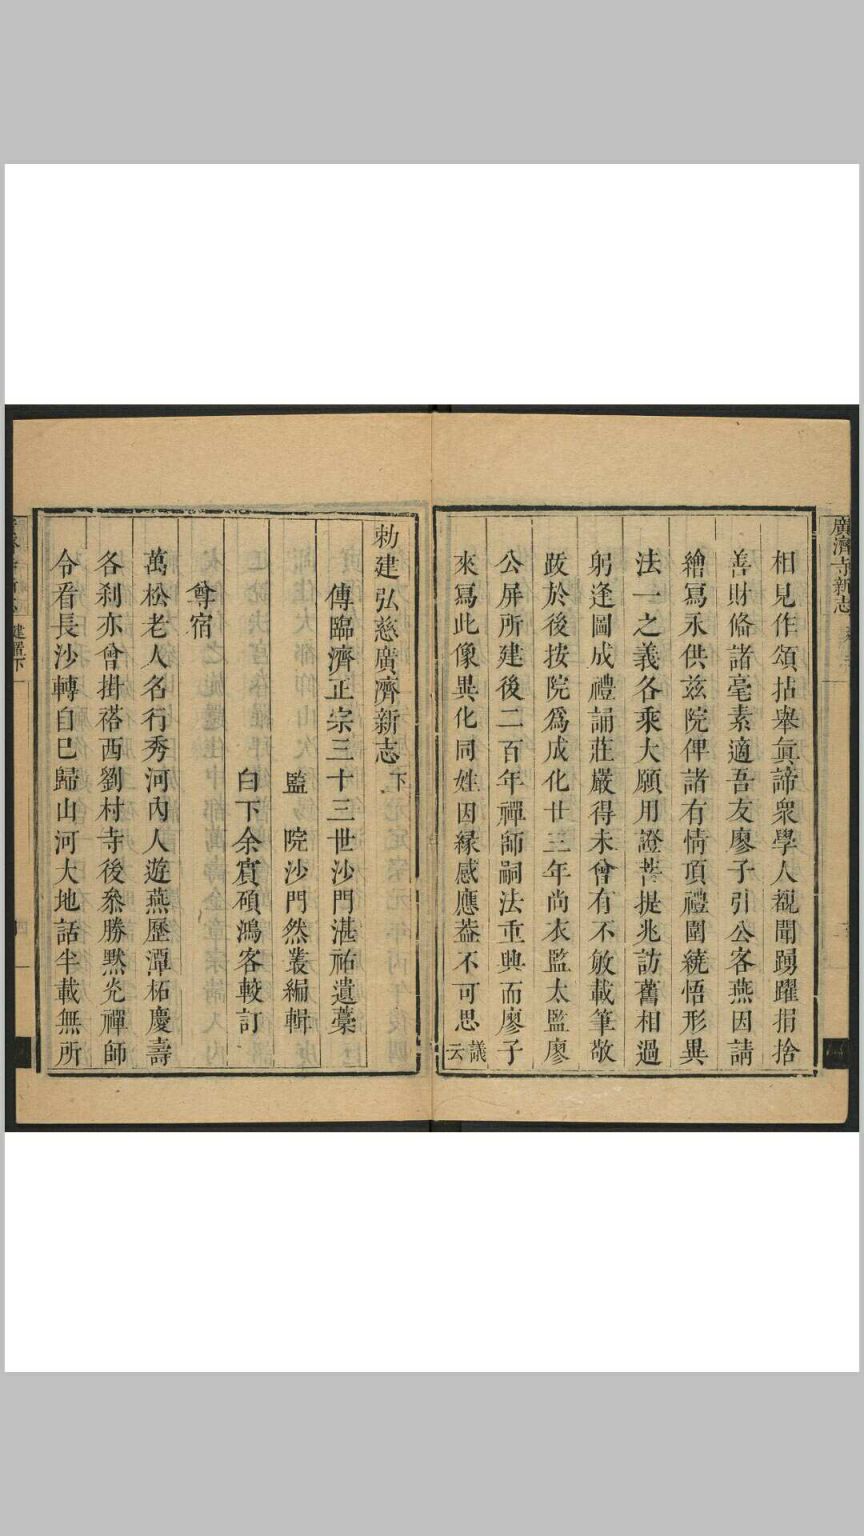 廣濟寺新志
相見作頌拈舉眞諦衆學人觀聞踴躍捐捨
善財脩諸毫素適吾友廖子引公客燕因請
繪寫永供兹院俾諸有情頂禮圍繞悟形異
法一之義各乘大願用證菩提兆訪舊相過
躬逢圖成禮誦莊嚴得未曾有不敏載筆敬
跋於後按院爲成化廿三年尚衣監太監廖
公屏所建後二百年禪師嗣法重興而廖子
來寫此像異化同姓因緣感應葢不可思議云
勅建弘慈廣濟新志下
傳臨濟正宗三十三世沙門湛祐遺藁
監院沙門然叢編輯
白下余賓碩鴻客較訂
尊宿
萬松老人名行秀河內人遊燕歷潭柘慶壽
各剎亦曾掛褡西劉村寺後叅勝黙光禪師
令看長沙轉自已歸山河大地話半載無所
建置下